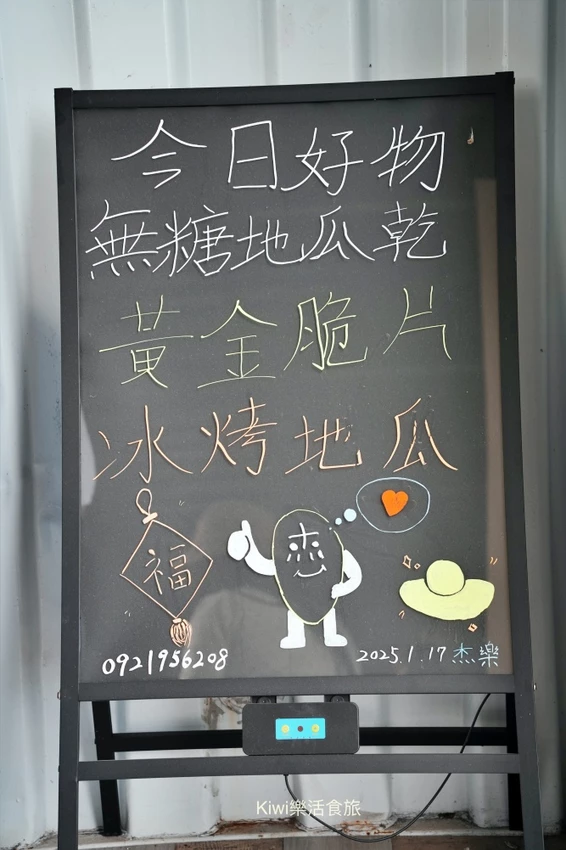 今日好物
無糖地瓜乾
黃金脆片
冰烤地瓜
福
杰
0921956208
2025.1.17 杰樂
Kiwi樂活食旅